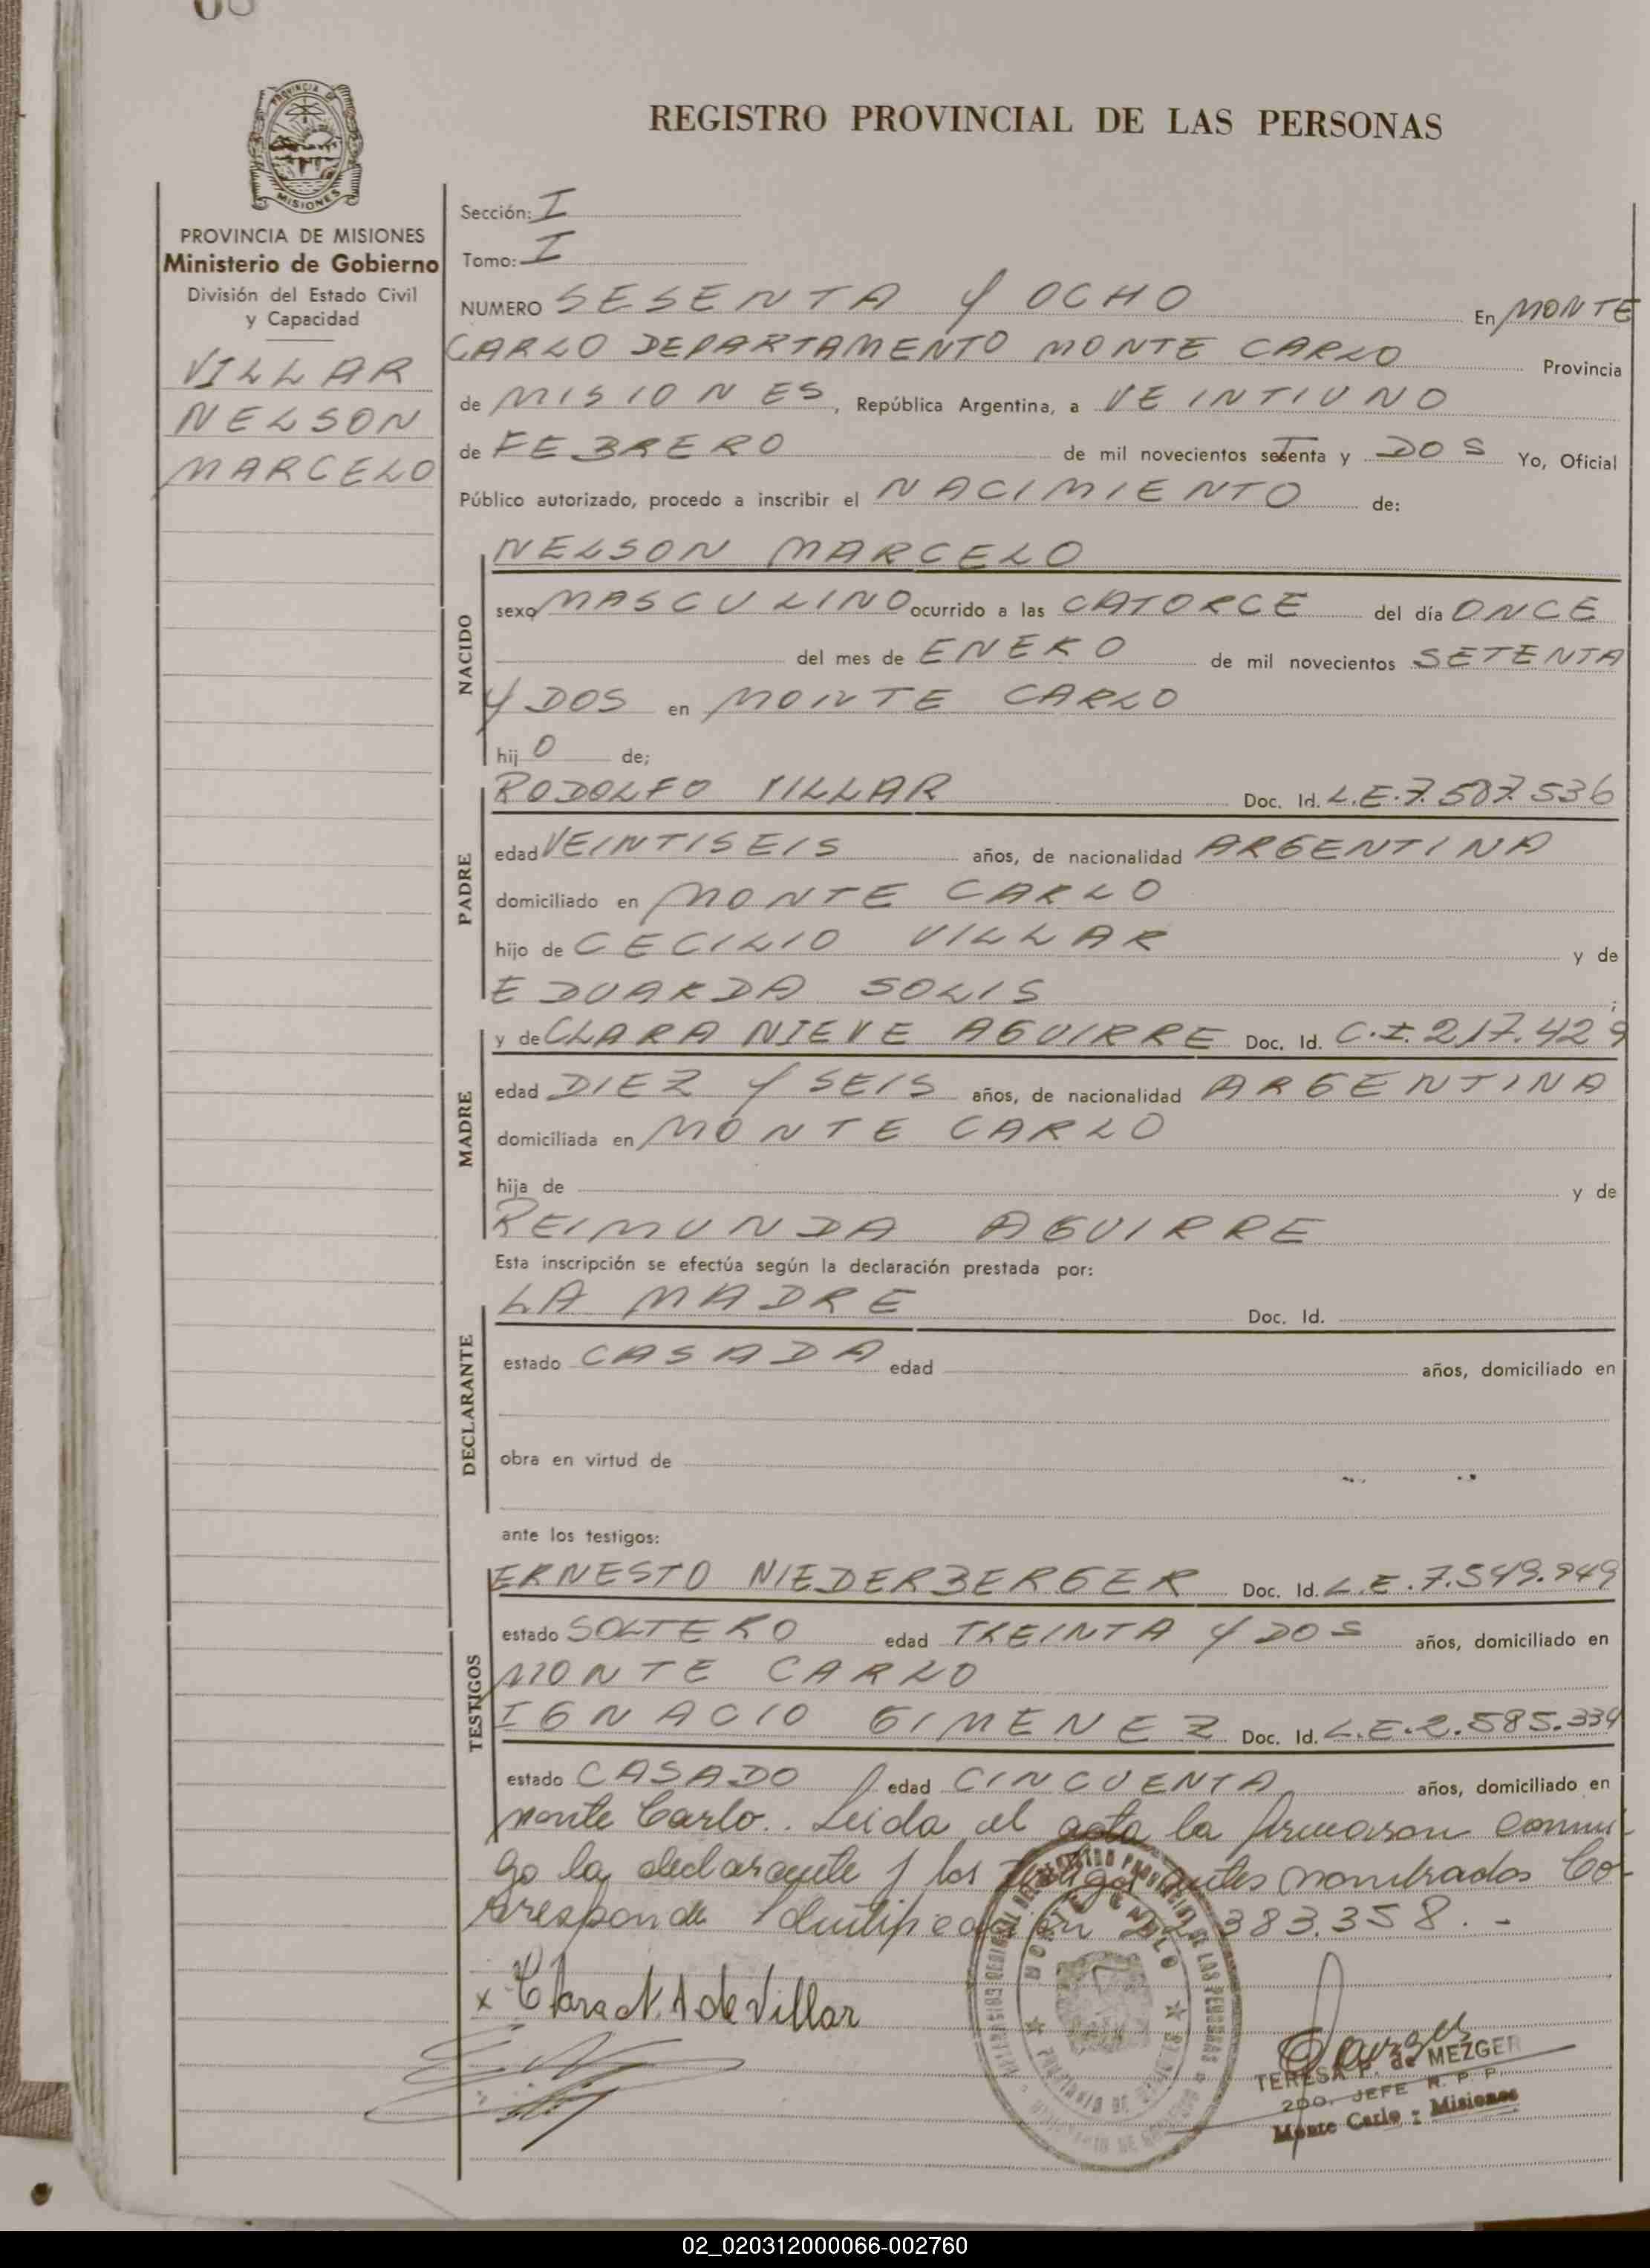 REGISTRO PROVINCIAL DE LAS PERSONAS
PROVINCIA DE
MISIONES
PROVINCIA DE MISIONES
Ministerio de Gobierno
División del Estado Civil
y Capacidad
VILLAR
NELSON
MARCELO
Sección: I
Tomo: I
NUMERO SESENTA Y OCHO En MONTE
CARLO DEPARTAMENTO MONTE CARLO Provincia
de MISIONES, República Argentina, a VEINTIUNO
de FEBRERO de mil novecientos setenta y DOS Yo, Oficial
Público autorizado, procedo a inscribir el NACIMIENTO de:
NACIDO
NELSON MARCELO
sexo MASCULINO ocurrido a las CATORCE del día ONCE
del mes de ENERO de mil novecientos SETENTA
Y DOS en MONTE CARLO
hijO de;
PADRE
RODOLFO VILLAR Doc. Id. L.E.7.587.536
edad VEINTISEIS años, de nacionalidad ARGENTINA
domiciliado en MONTE CARLO
hijo de CECILIO VILLAR y de
EDUARDA SOLIS ;
MADRE
y de CLARA NIEVE AGUIRRE Doc. Id. C.I. 217.429
edad DIEZ Y SEIS años, de nacionalidad ARGENTINA
domiciliada en MONTE CARLO
hija de y de
REIMUNDA AGUIRRE
Esta inscripción se efectúa según la declaración prestada por:
DECLARANTE
LA MADRE Doc. Id.
estado CASADA edad años, domiciliado en
obra en virtud de
ante los testigos:
TESTIGOS
ERNESTO NIEDERBERGER Doc. Id. L.E.7.549.949
estado SOLTERO edad TREINTA Y DOS años, domiciliado en
MONTE CARLO
IGNACIO GIMENEZ Doc. Id. L.E.2.585.334
estado CASADO edad CINCUENTA años, domiciliado en
Monte Carlo.. Leida el acta la firmaron conmi-
go la declarante y los testigos antes nombrados Co-
rresponde Identificación 22.383.358.-
x Clara N. A de Villar
MONTE CARLO
TERESA P. de MEZGER
2DO. JEFE R. P. P.
Monte Carlo - Misiones
02_020312000066-002760